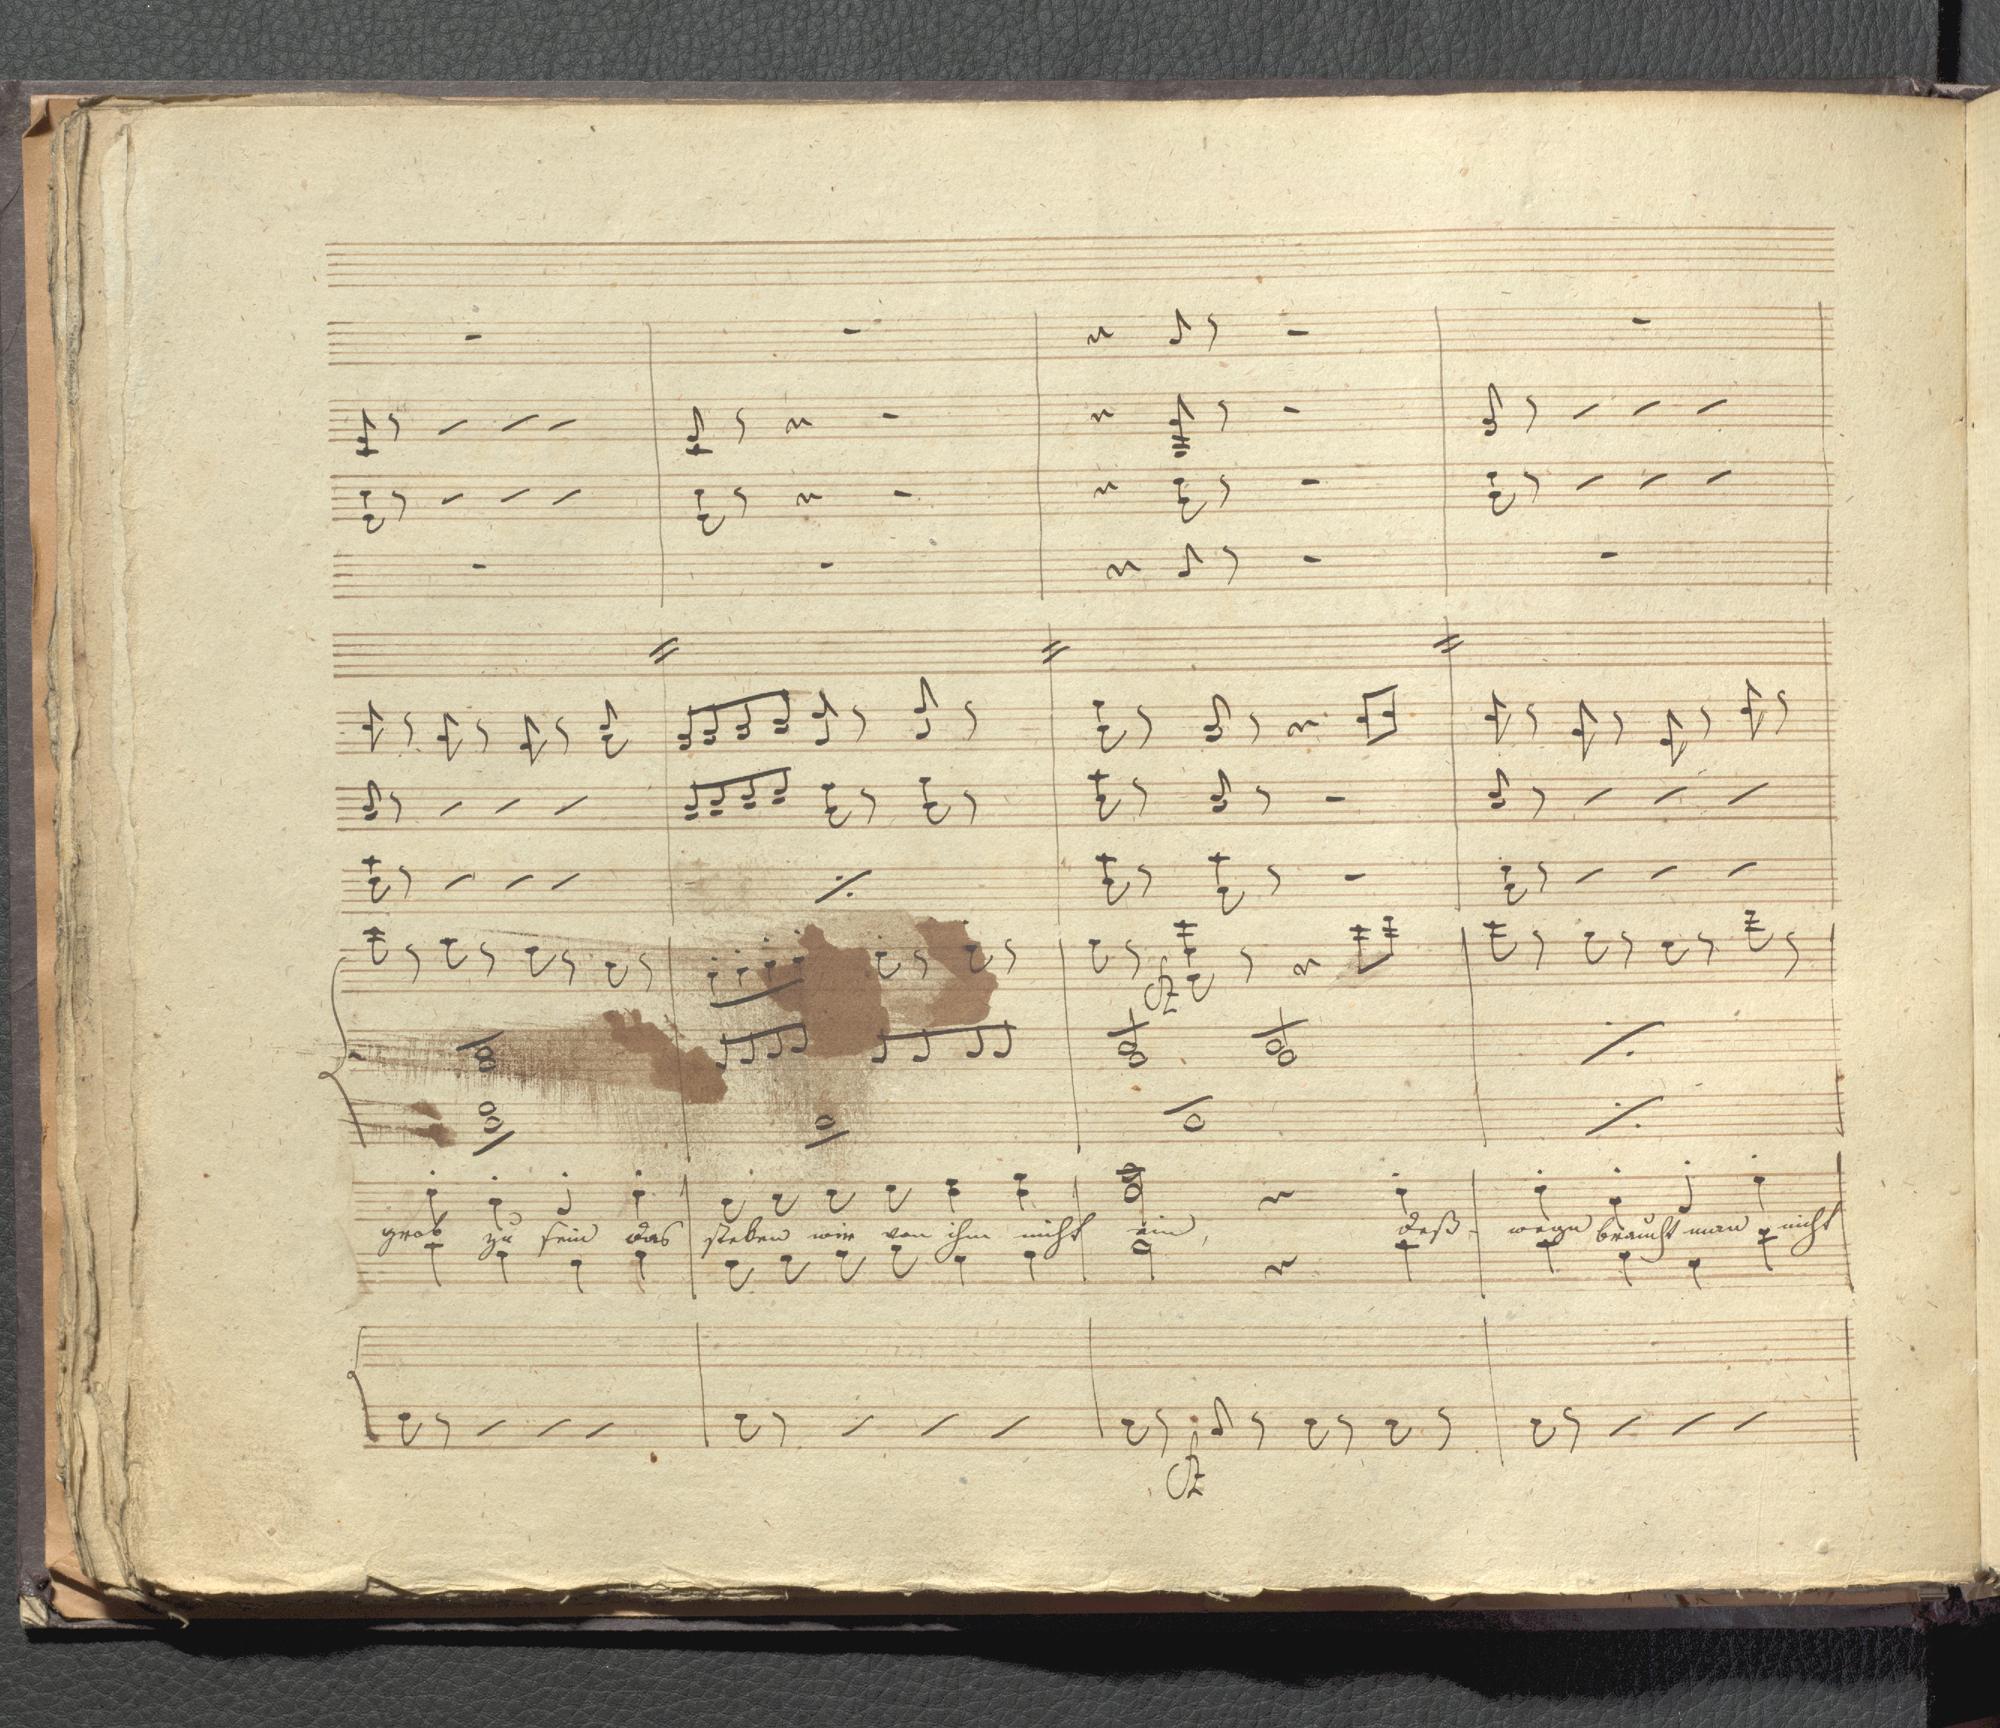 grob zu sein das steben wir von ihm nicht ein, deß- wegn braucht man nicht